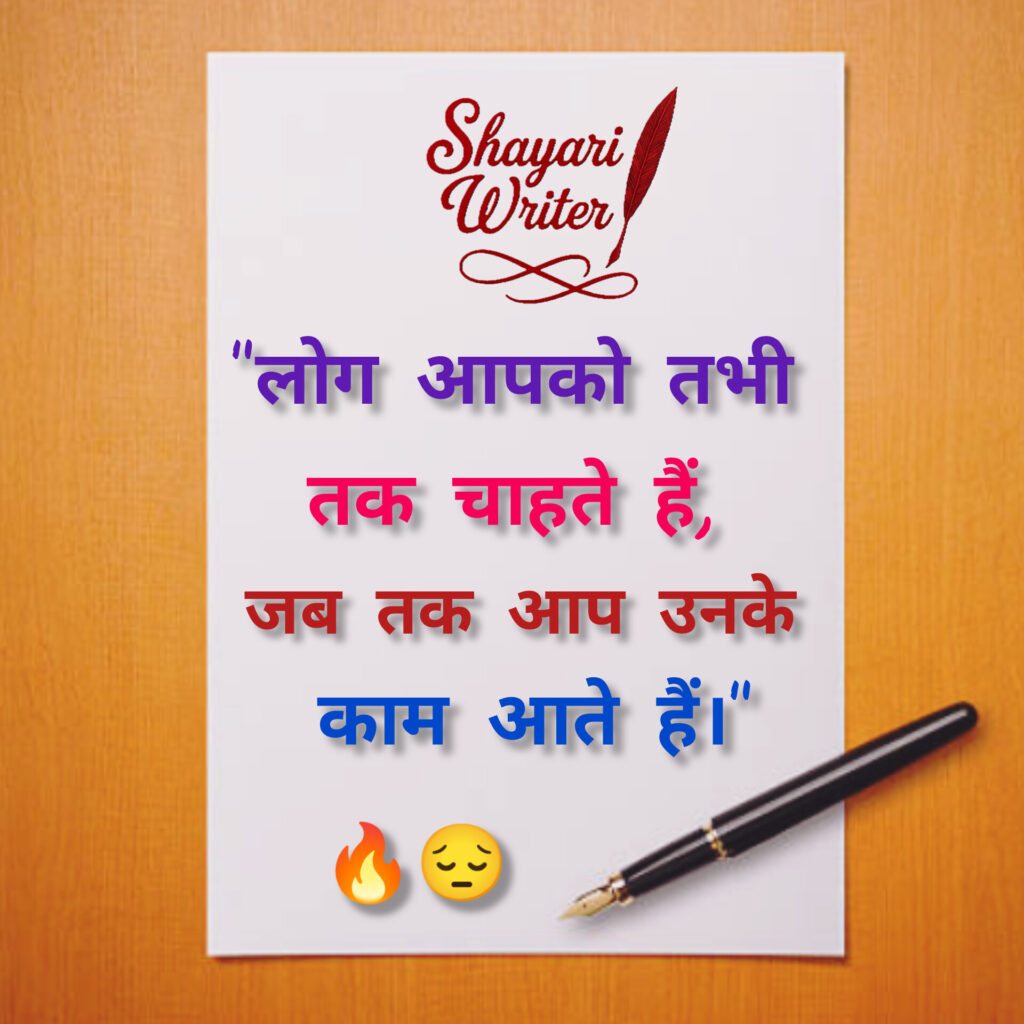 Shayari
Writer
"लोग आपको तभी
तक चाहते हैं,
जब तक आप उनके
काम आते हैं।"
🔥😔